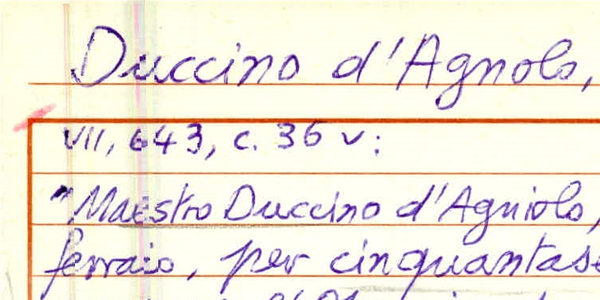 Duccino d'Agnolo,
VII, 643, c. 36 v:
"Maestro Duccino d'Agniolo,
ferraio, per cinquantase